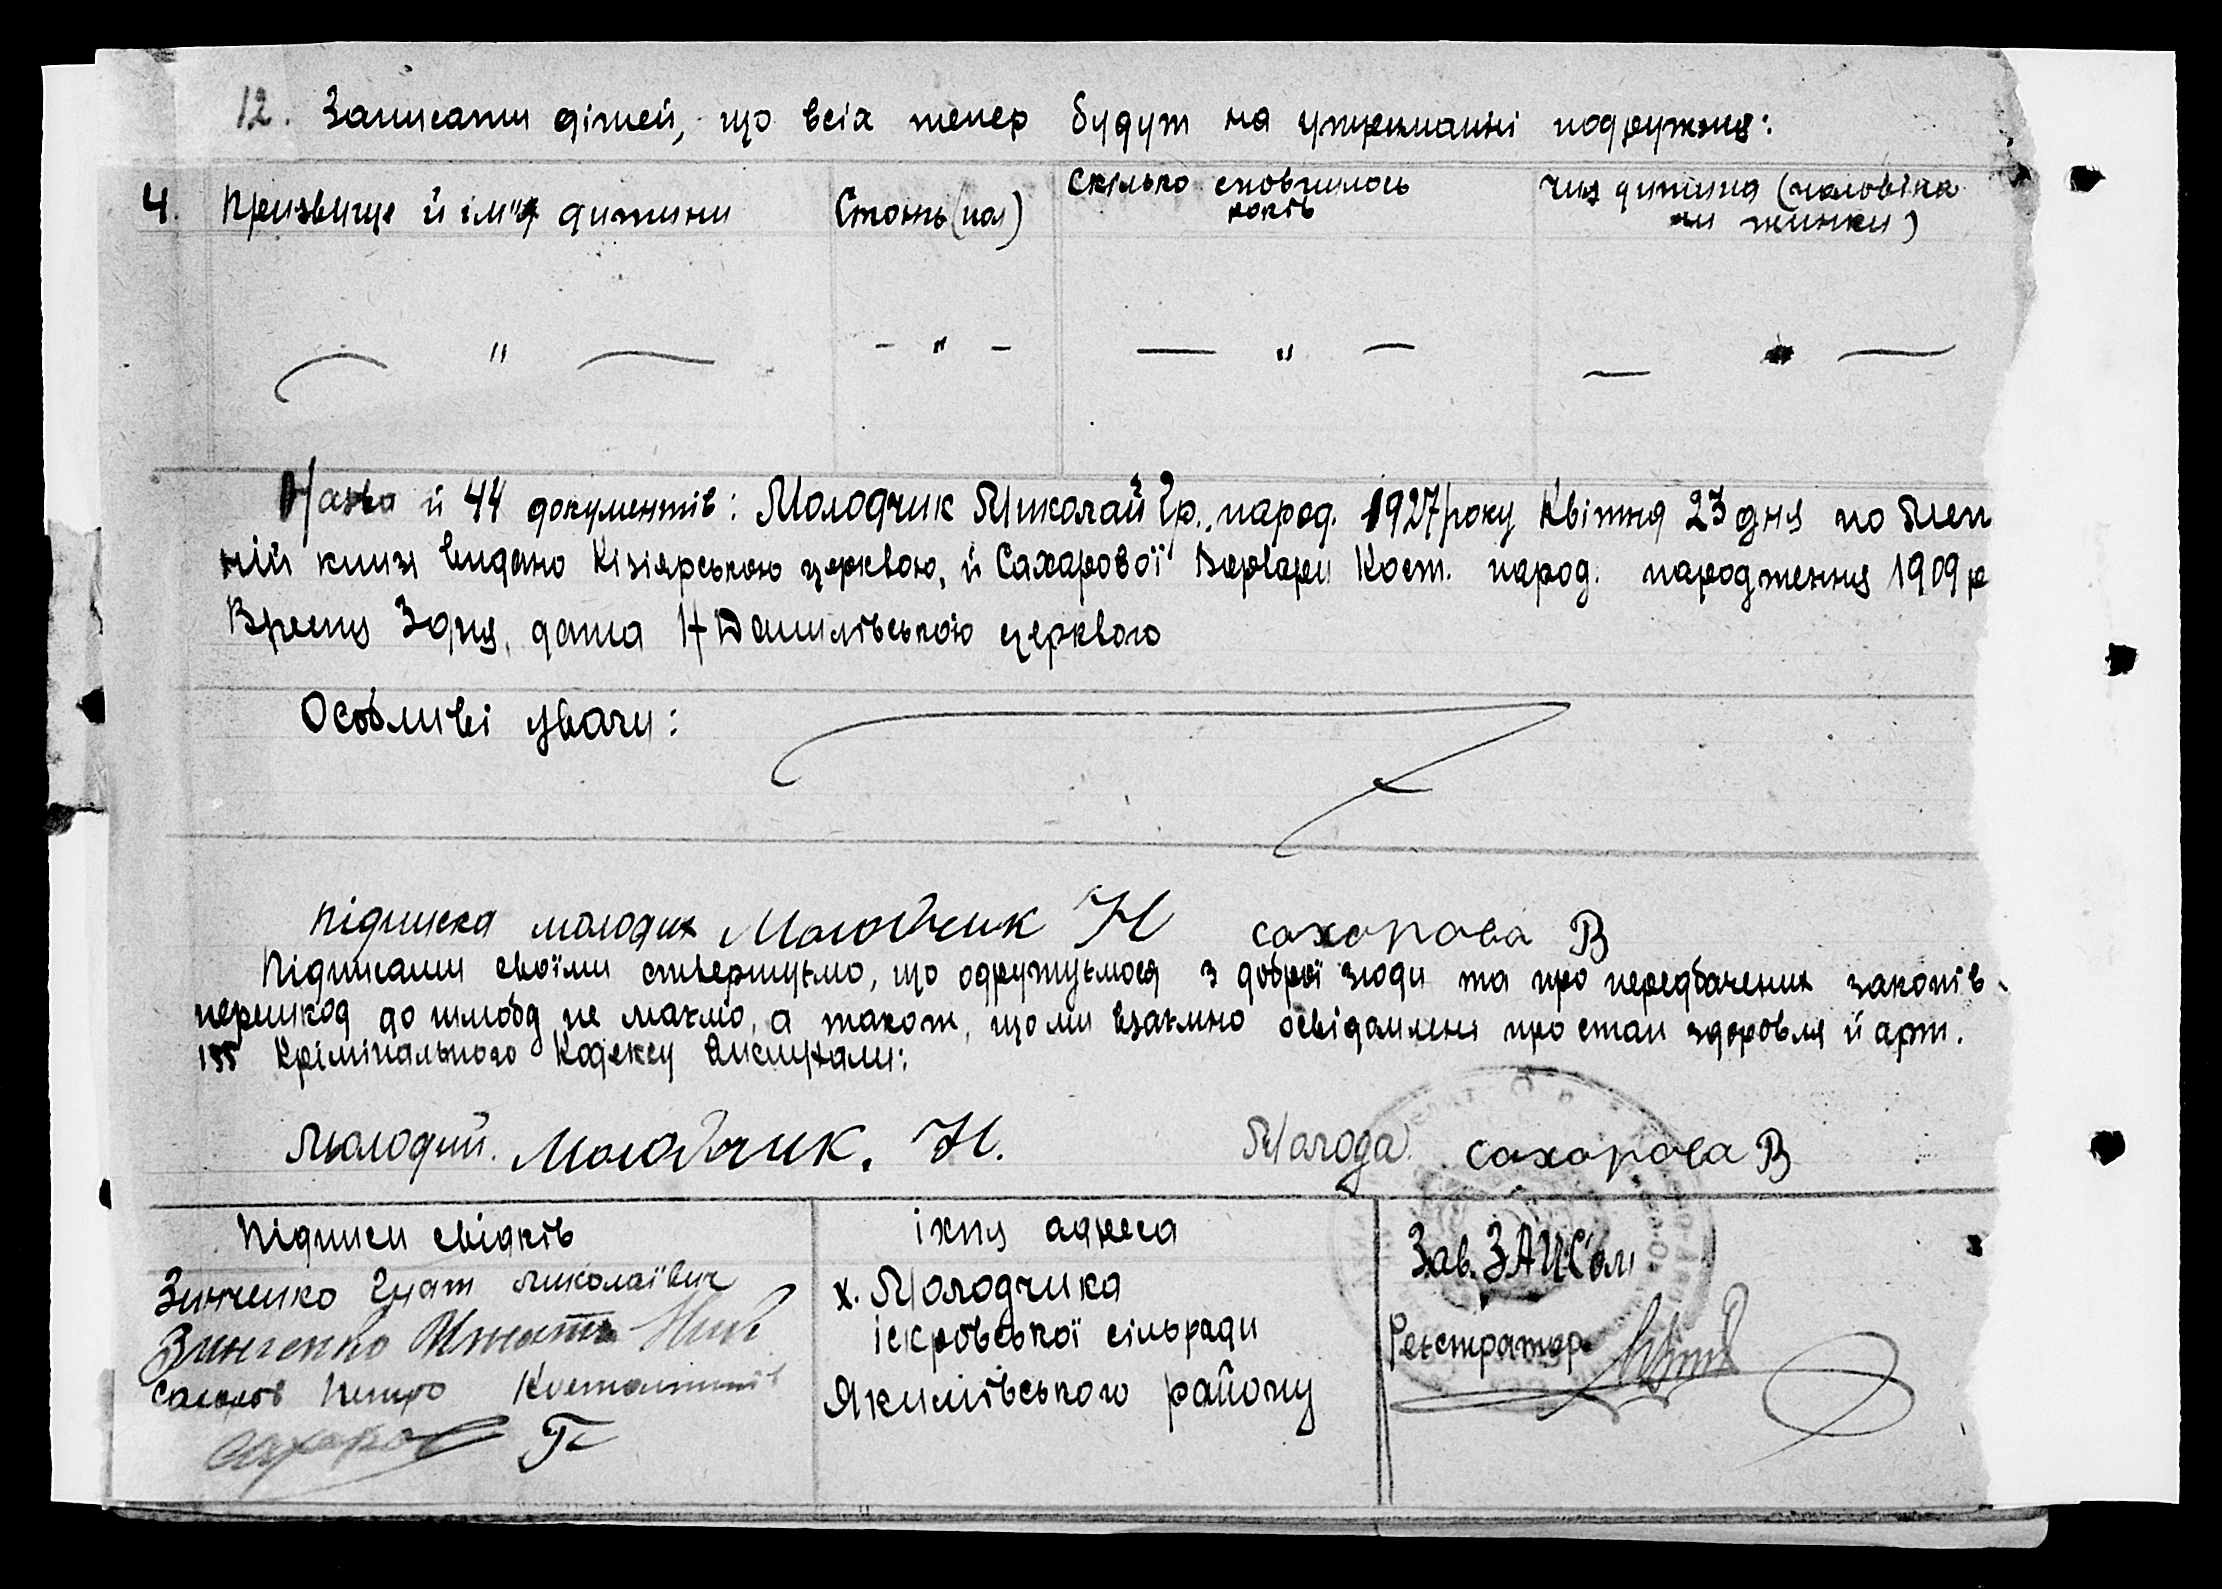 12. Записати дітей, що всіх тепер будут на утриманні подружжя:
4. Призвище й ім'я дитини
Стать (пол)
Скілько сповнилось років
Чия дитина (чоловіка чи жинки)
— " —
- " -
— " —
— " —
Назва й 44 документів: Молодчик Миколай Гр. народ. 1927 року Квітня 23 дня по
ній книзі видано Кізіярською церквою, й Сахарової Варвари Кост. народ. народження 1909 р
Зоря, дата Н Данилівською церквою
Особливі уваги:
Підписка молодих Молодчик Н сахорова В
Підписами своїми ствержуємо, що одружуємося з доброї згоди та про передбачених законів
перешкод до шлюбу не маємо, а також, що ми взаємно освідомлені про стан здоровля й арт.
155 Крімінального Кодексу вислухали:
Молодий. Молодчик. Н. Молода. сахорова В
Підписи свідків
Зинченко Гнат Миколаївич
Зинченко Игнат
Сахаров Петро
Сахаров П
їхня адреса
х. Молодчика
іскровської сільради
Якимівського району
Зав. ЗАГС'ом
Реєстратор